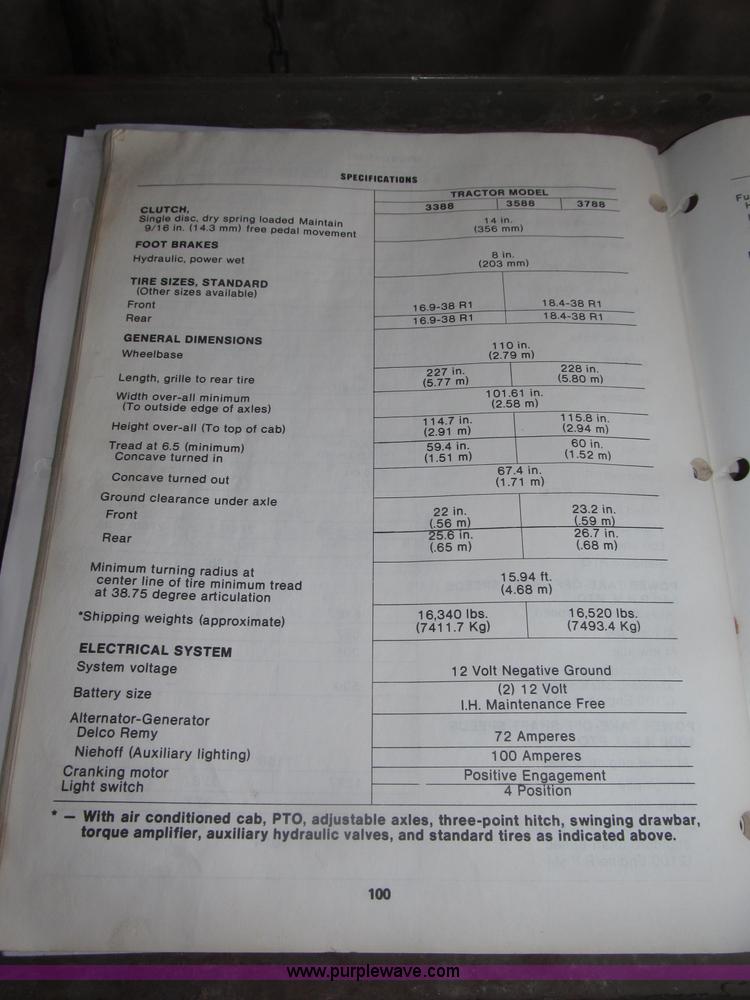 SPECIFICATIONS
TRACTOR MODEL
3388 3588 3788
CLUTCH,
Single disc, dry spring loaded Maintain
9/16 in. (14.3 mm) free pedal movement
14 in.
(356 mm)
FOOT BRAKES
Hydraulic, power wet
8 in.
(203 mm)
TIRE SIZES, STANDARD
(Other sizes available)
Front 16.9-38 R1 18.4-38 R1
Rear 16.9-38 R1 18.4-38 R1
GENERAL DIMENSIONS
Wheelbase 110 in.
(2.79 m)
Length, grille to rear tire 227 in. 228 in.
(5.77 m) (5.80 m)
Width over-all minimum 101.61 in.
(To outside edge of axles) (2.58 m)
Height over-all (To top of cab) 114.7 in. 115.8 in.
(2.91 m) (2.94 m)
Tread at 6.5 (minimum)
Concave turned in 59.4 in. 60 in.
(1.51 m) (1.52 m)
Concave turned out 67.4 in.
(1.71 m)
Ground clearance under axle
Front 22 in. 23.2 in.
(.56 m) (.59 m)
Rear 25.6 in. 26.7 in.
(.65 m) (.68 m)
Minimum turning radius at
center line of tire minimum tread
at 38.75 degree articulation
15.94 ft.
(4.68 m)
*Shipping weights (approximate) 16,340 lbs. 16,520 lbs.
(7411.7 Kg) (7493.4 Kg)
ELECTRICAL SYSTEM
System voltage 12 Volt Negative Ground
Battery size (2) 12 Volt
I.H. Maintenance Free
Alternator-Generator
Delco Remy 72 Amperes
Niehoff (Auxiliary lighting) 100 Amperes
Cranking motor Positive Engagement
Light switch 4 Position
* — With air conditioned cab, PTO, adjustable axles, three-point hitch, swinging drawbar,
torque amplifier, auxiliary hydraulic valves, and standard tires as indicated above.
100
www.purplewave.com